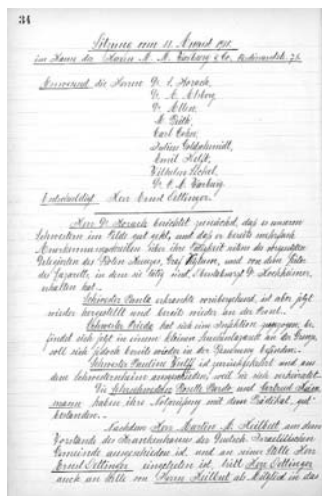 34
Sitzung vom 11. August 1915
im Hause der Herren M. M. Warburg & Co. Ferdinandstr. 75.
Anwesend die Herren Dr. S. Korach,
Dr. A. Alsberg
Dr. Allen,
M. Püth,
Carl Cohn,
Julius Goldschmidt,
Emil Heilft,
Wilhelm Söchel,
Dr. A. M. Warburg.
Entschuldigt Herr Ernst Oettinger.
Herr Dr. Korach berichtet zunächst, dass es unseren
Schwestern im Felde gut geht, und dass er bereits mehrfach
Anerkennungs über ihre Tätigkeit seitens des
Delegierten des Roten Kreuzes, Graf und von dem Leiter
des Lazaretts, in dem sie tätig sind, Oberstabsarzt Dr. Hochheimer,
erhalten hat.
Schwester Paula erkrankte vorübergehend, ist aber jetzt
wieder hergestellt und bereits wieder an der Front.
Schwester Frieda hat sich eine Infektion zugezogen, be-
findet sich jetzt in einem kleinen Seuchenlazarett an der Grenze,
soll sich jedoch bereits wieder in der Genesung befinden.
Schwester Pauline Wolff ist zurückgekehrt und aus
dem Schwesternheim ausgeschieden, weil sie sich verheiratet.
Die Lehrschwestern Rosette Pardo und Gertrud
mann haben ihre Notprüfung mit dem Prädikat "gut"
bestanden.
Nachdem Herr Martin M. Heilbut aus dem
Vorstande des Krankenhauses der Deutsch-Israelitischen
Gemeinde ausgeschieden ist, und an seiner Stelle Herr
Ernst Oettinger eingetreten ist, tritt Herr Oettinger
auch an Stelle von Herrn Heilbut als Mitglied in das